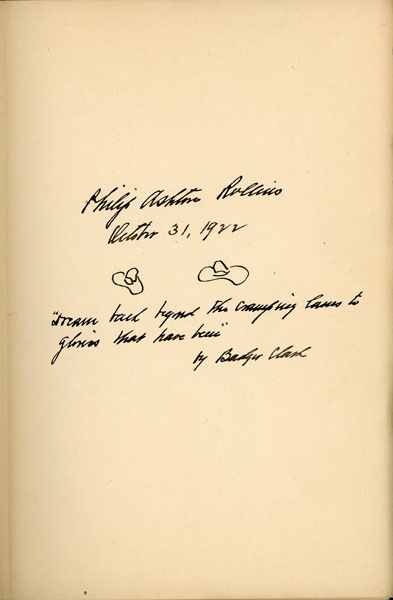 Philip Ashton Rollins
October 31, 1922
"Dream back beyond the cramping lanes to
glories that have been"
by Badger Clark